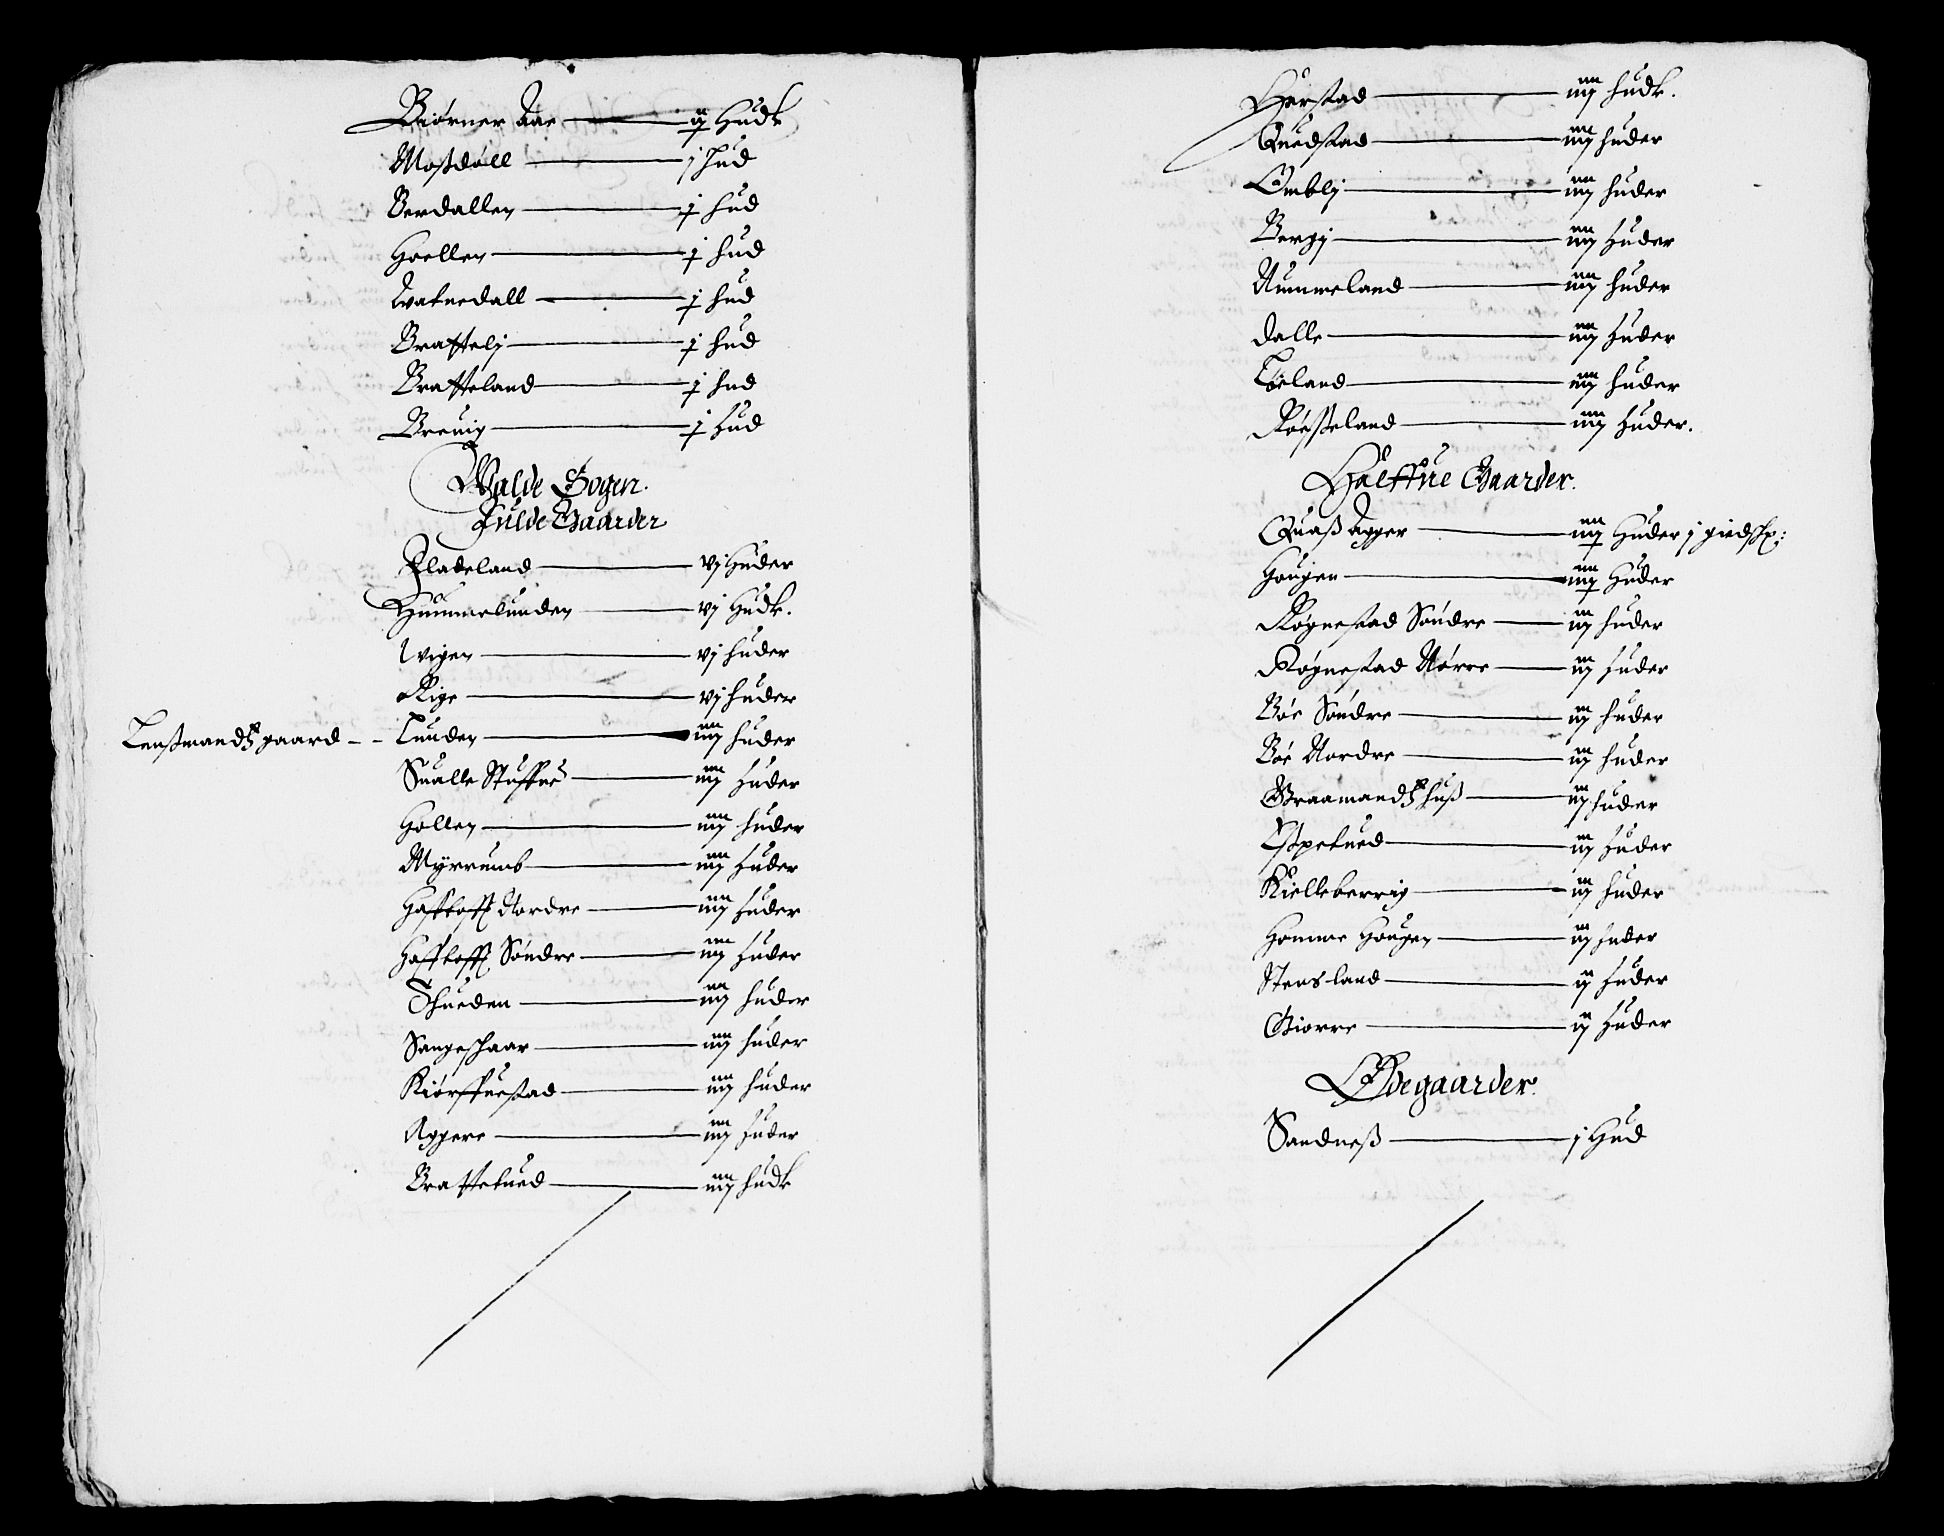 Biørner Aae — ij Hudr
Moszdøll — j Hud
Berdallen — j Hud
Hoellen — j Hud
Watnedall — j Hud
Brattelj — j Hud
Bratteland — j Hud
Breuig — j Hud
Walde Sogen.
Fulde Gaarder
Fladeland — vj Huder
Hummelunden — vj Hudr.
Wigen — vj huder
Rige — vj huder
Lenszmandtz gaard - - Lunden — iiij huder
Sualle Stuffue — iiij Huder
Hollen — iiij huder
Myrrumb — iiij Huder
Haffkoff Nordre — iiij Huder
Haffkoff Søndre — iiij Huder
Thueden — iiij huder
Sangeshaar — iiij huder
Kiørffuestad — iiij huder
Aggere — iiij Huder
Brattetued — iiij hudr
Harstad — iiij hudr.
Quedstad — iiij huder
Omblj — iiij huder
Bergj — iiij Huder
Nummeland — iiij huder
Dalle — iiij Huder
Løeland — iiij huder
Røeszeland — iiij Huder.
Halffue Gaarder.
Quasz Agger — iiij Huder j giedsk:
Hougen — iiij Huder
Røgnestad Søndre — iij huder
Røgnestad Nørre — iij Huder
Bøe Søndre — iij huder
Bøe Nordre — iij huder
Graamandtz husz — iij huder
Espetued — iij Huder
Kielleberrig — iij huder
Homme Hougen — iij huder
Stensland — ij Huder
Giorre — ij Huder
Ødegaarder.
Sandnesz — j Hud